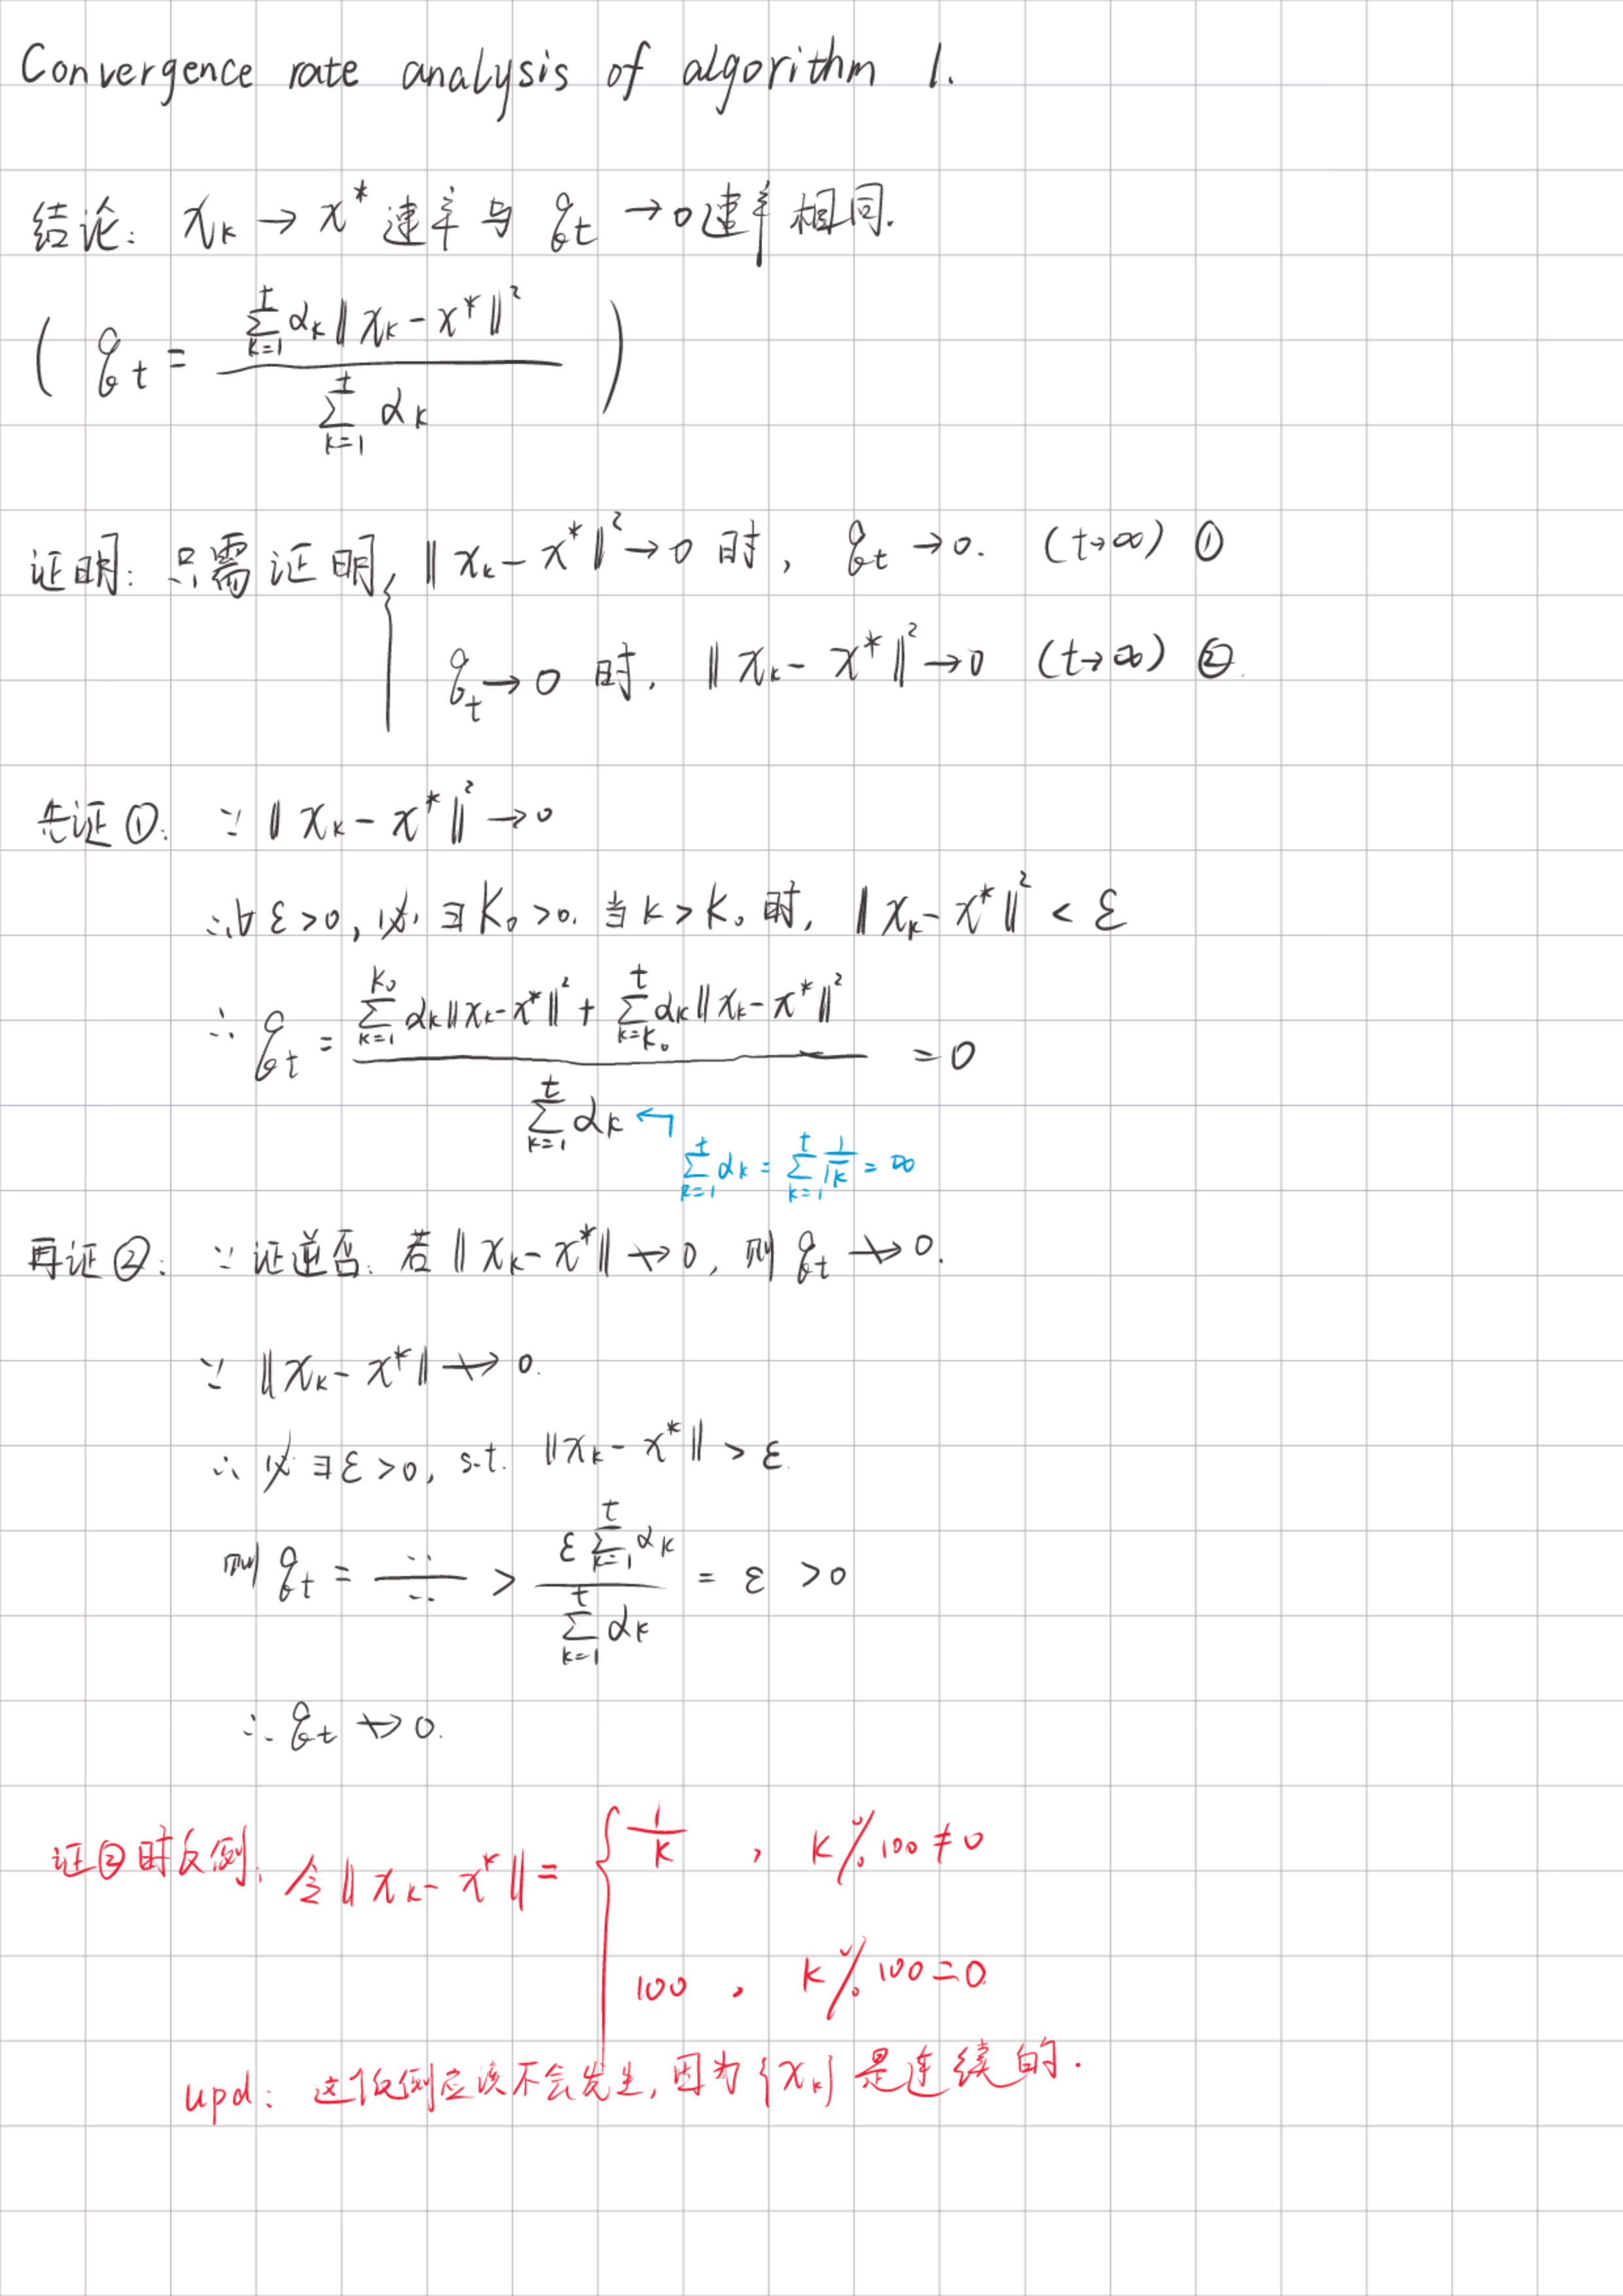 Convergence rate analysis of algorithm 1.
结论: x_k → x* 速率与 g_t → 0 速率相同.
( g_t = \frac{\sum_{k=1}^{t} α_k ‖x_k - x*‖²}{\sum_{k=1}^{t} α_k} )
证明: 只需证明 { ‖x_k - x*‖² → 0 时, g_t → 0. (t→∞) ①
g_t → 0 时. ‖x_k - x*‖² → 0 (t→∞) ②.
先证①: ∵ ‖x_k - x*‖² → 0
∴ ∀ε>0, 必∃K_0>0. 当k>K_0时, ‖x_k - x*‖² < ε
∴ g_t = \frac{\sum_{k=1}^{K_0} α_k‖x_k - x*‖² + \sum_{k=K_0}^{t} α_k‖x_k - x*‖²}{\sum_{k=1}^{t} α_k} = 0
\sum_{k=1}^{t} α_k = \sum_{k=1}^{t} \frac{1}{\sqrt{k}} = ∞
再证②: ∵ 证逆否: 若 ‖x_k - x*‖ ↛ 0, 则 g_t ↛ 0.
∵ ‖x_k - x*‖ ↛ 0.
∴ 必∃ε>0, s.t. ‖x_k - x*‖ > ε.
则 g_t = \frac{..}{..} > \frac{ε \sum_{k=1}^{t} α_k}{\sum_{k=1}^{t} α_k} = ε > 0
∴ g_t ↛ 0.
证②时反例: 令‖x_k - x*‖ = { \frac{1}{k} , k%100≠0
100 , k%100=0.
upd: 这个反例应该不会发生, 因为{x_k}是连续的.